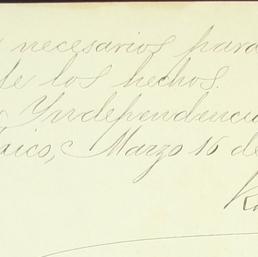 necesarios para
de los hechos.
Independencia
xico, Marzo 16 de